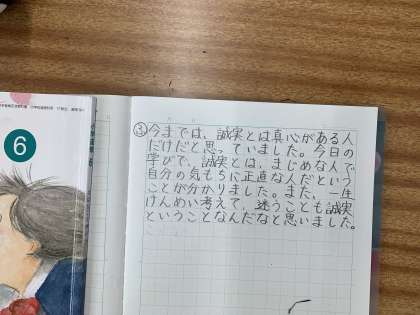 6
③今までは、誠実とは真心がある人
だけだと思っていました。今日の
学びで、誠実とは、まじめな人で
自分の気もちに正直な人だという
ことが分かりました。また、一生
けんめい考えて、迷うことも誠実
ということなんだなと思いました。